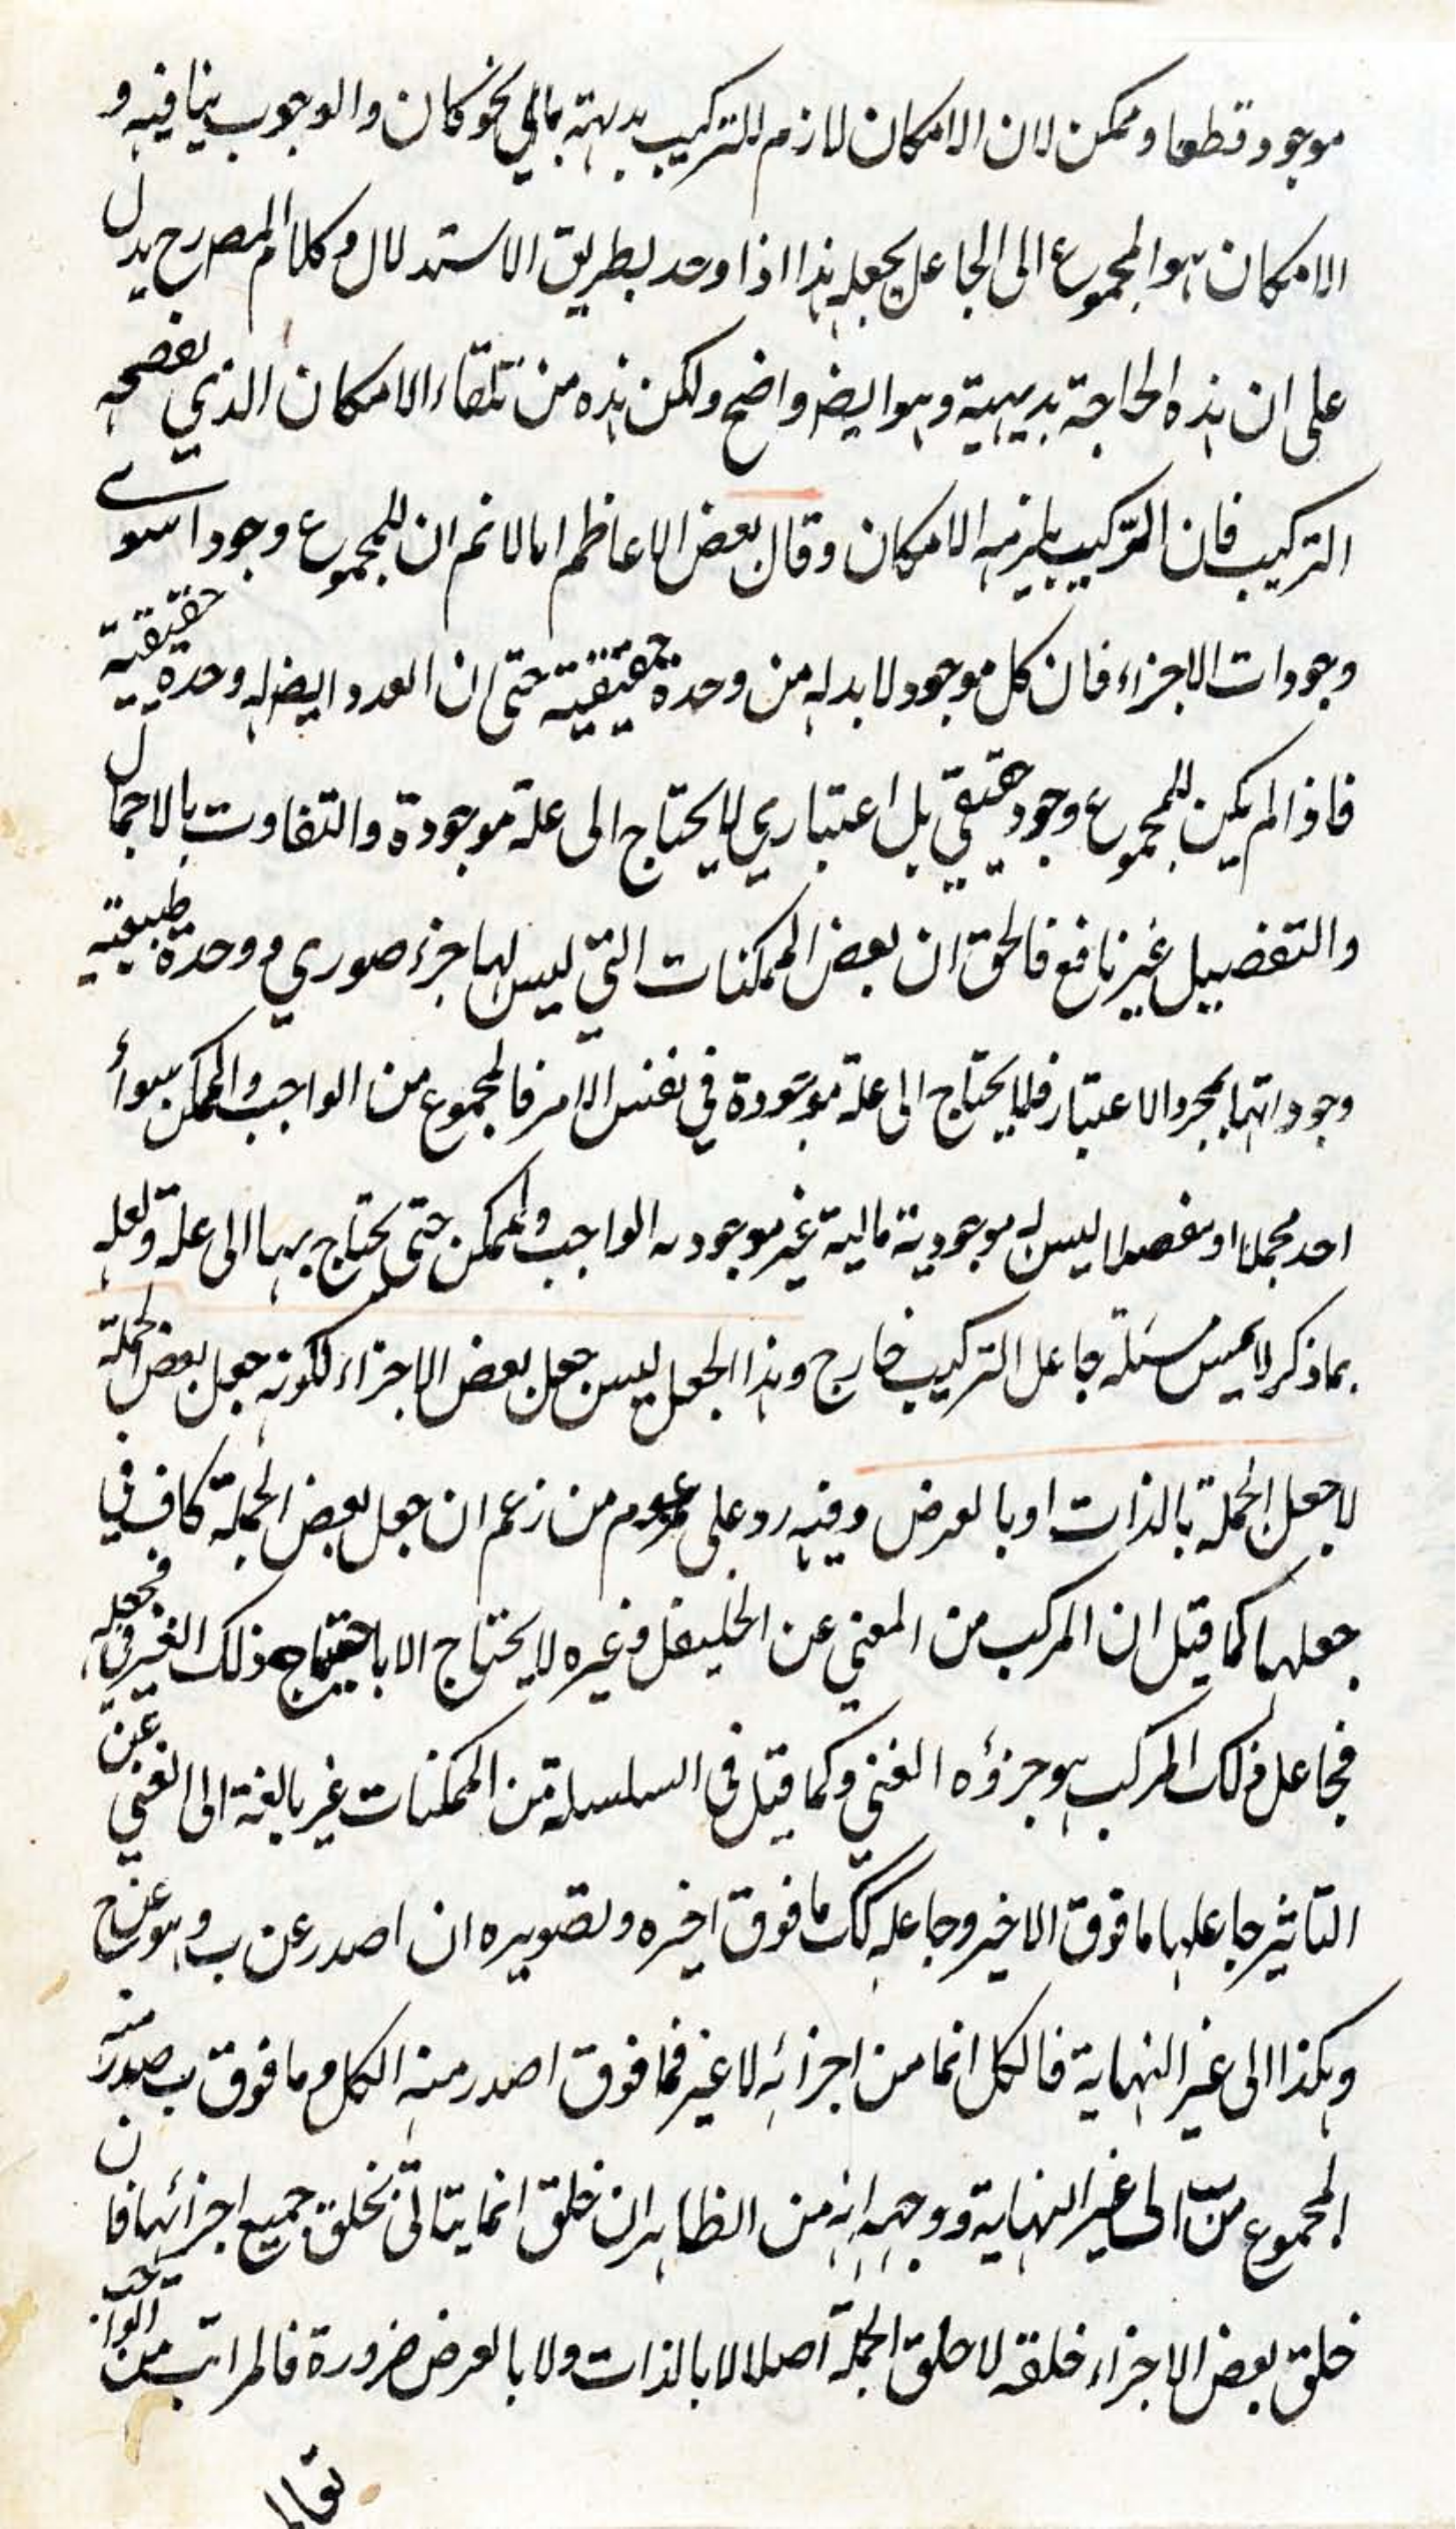 موجود قطعا وممكن لان الامكان لازم للتركيب بديهة باي نحو كان والوجوب ينافيه و
الامكان هو المجموع الى الجاعل يجعله هذا اذا وحد بطريق الاستدلال وكلام المصرح يدل
على ان هذه الحاجة بديهية وهو ايضا واضح ولكن هذه من تلقاء الامكان الذي نفصحه
التركيب فان التركيب يلزمه الامكان وقال بعض الاعاظم انا لا نم ان للمجموع وجودا سوى
وجودات الاجزاء فان كل موجود لا بد له من وحدة حقيقية حتى ان العدد ايضا له وحدة حقيقية
فاذا لم يكن للمجموع وجود حقيقي بل اعتباري لا يحتاج الى علة موجودة والتفاوت بالاجمال
والتفصيل غير نافع فالحق ان بعض الممكنات التي ليس لها جزء صوري و وحدة طبيعية
وجوداتها بمجرد الاعتبار فلا يحتاج الى علة موجودة في نفس الامر فالمجموع من الواجب والممكن سواء
احد مجملا او مفصلا ليس له موجودية مالية غير موجودية الواجب والممكن حتى يحتاج بها الى علة ولعله
بما ذكر لا يمس مسئلة جاعل التركيب خارج وهذا الجعل ليس جعل بعض الاجزاء لكونه جعل بعض الجملة
لا جعل الجملة بالذات او بالعرض وفيه رد على من زعم ان جعل بعض الجملة كاف في
جعلها كما قيل ان المركب من الغني عن وغيره لا يحتاج الا باحتياج ذلك الغير في جعله
فجاعل ذلك المركب هو جزؤه الغني وكما قيل في السلسلة من الممكنات غير بالغة الى الغني عن
التاثير جاعلها ما فوق الاخير وجاعله كك ما فوق اخيره وتصويره ان ا صدر عن ب وهو عن ج
وهكذا الى غير النهاية فالكل انما من اجزائه لا غير فما فوق ا صدر منه الكل وما فوق ب صدر منه
المجموع من ب الى غير النهاية ووجهه انه من الظاهر ان خلق انما يتاتى بخلق جميع اجزائها فان
خلق بعض الاجزاء خلقه لا خلق الجملة اصلا لا بالذات ولا بالعرض ضرورة فالمراتب من الواجب